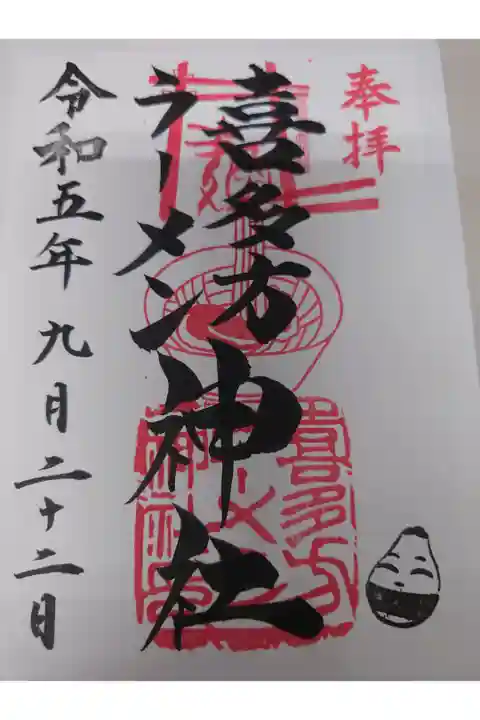 奉拝
喜多方
ラーメン神社
喜多方
ラーメン
令和五年九月二十二日